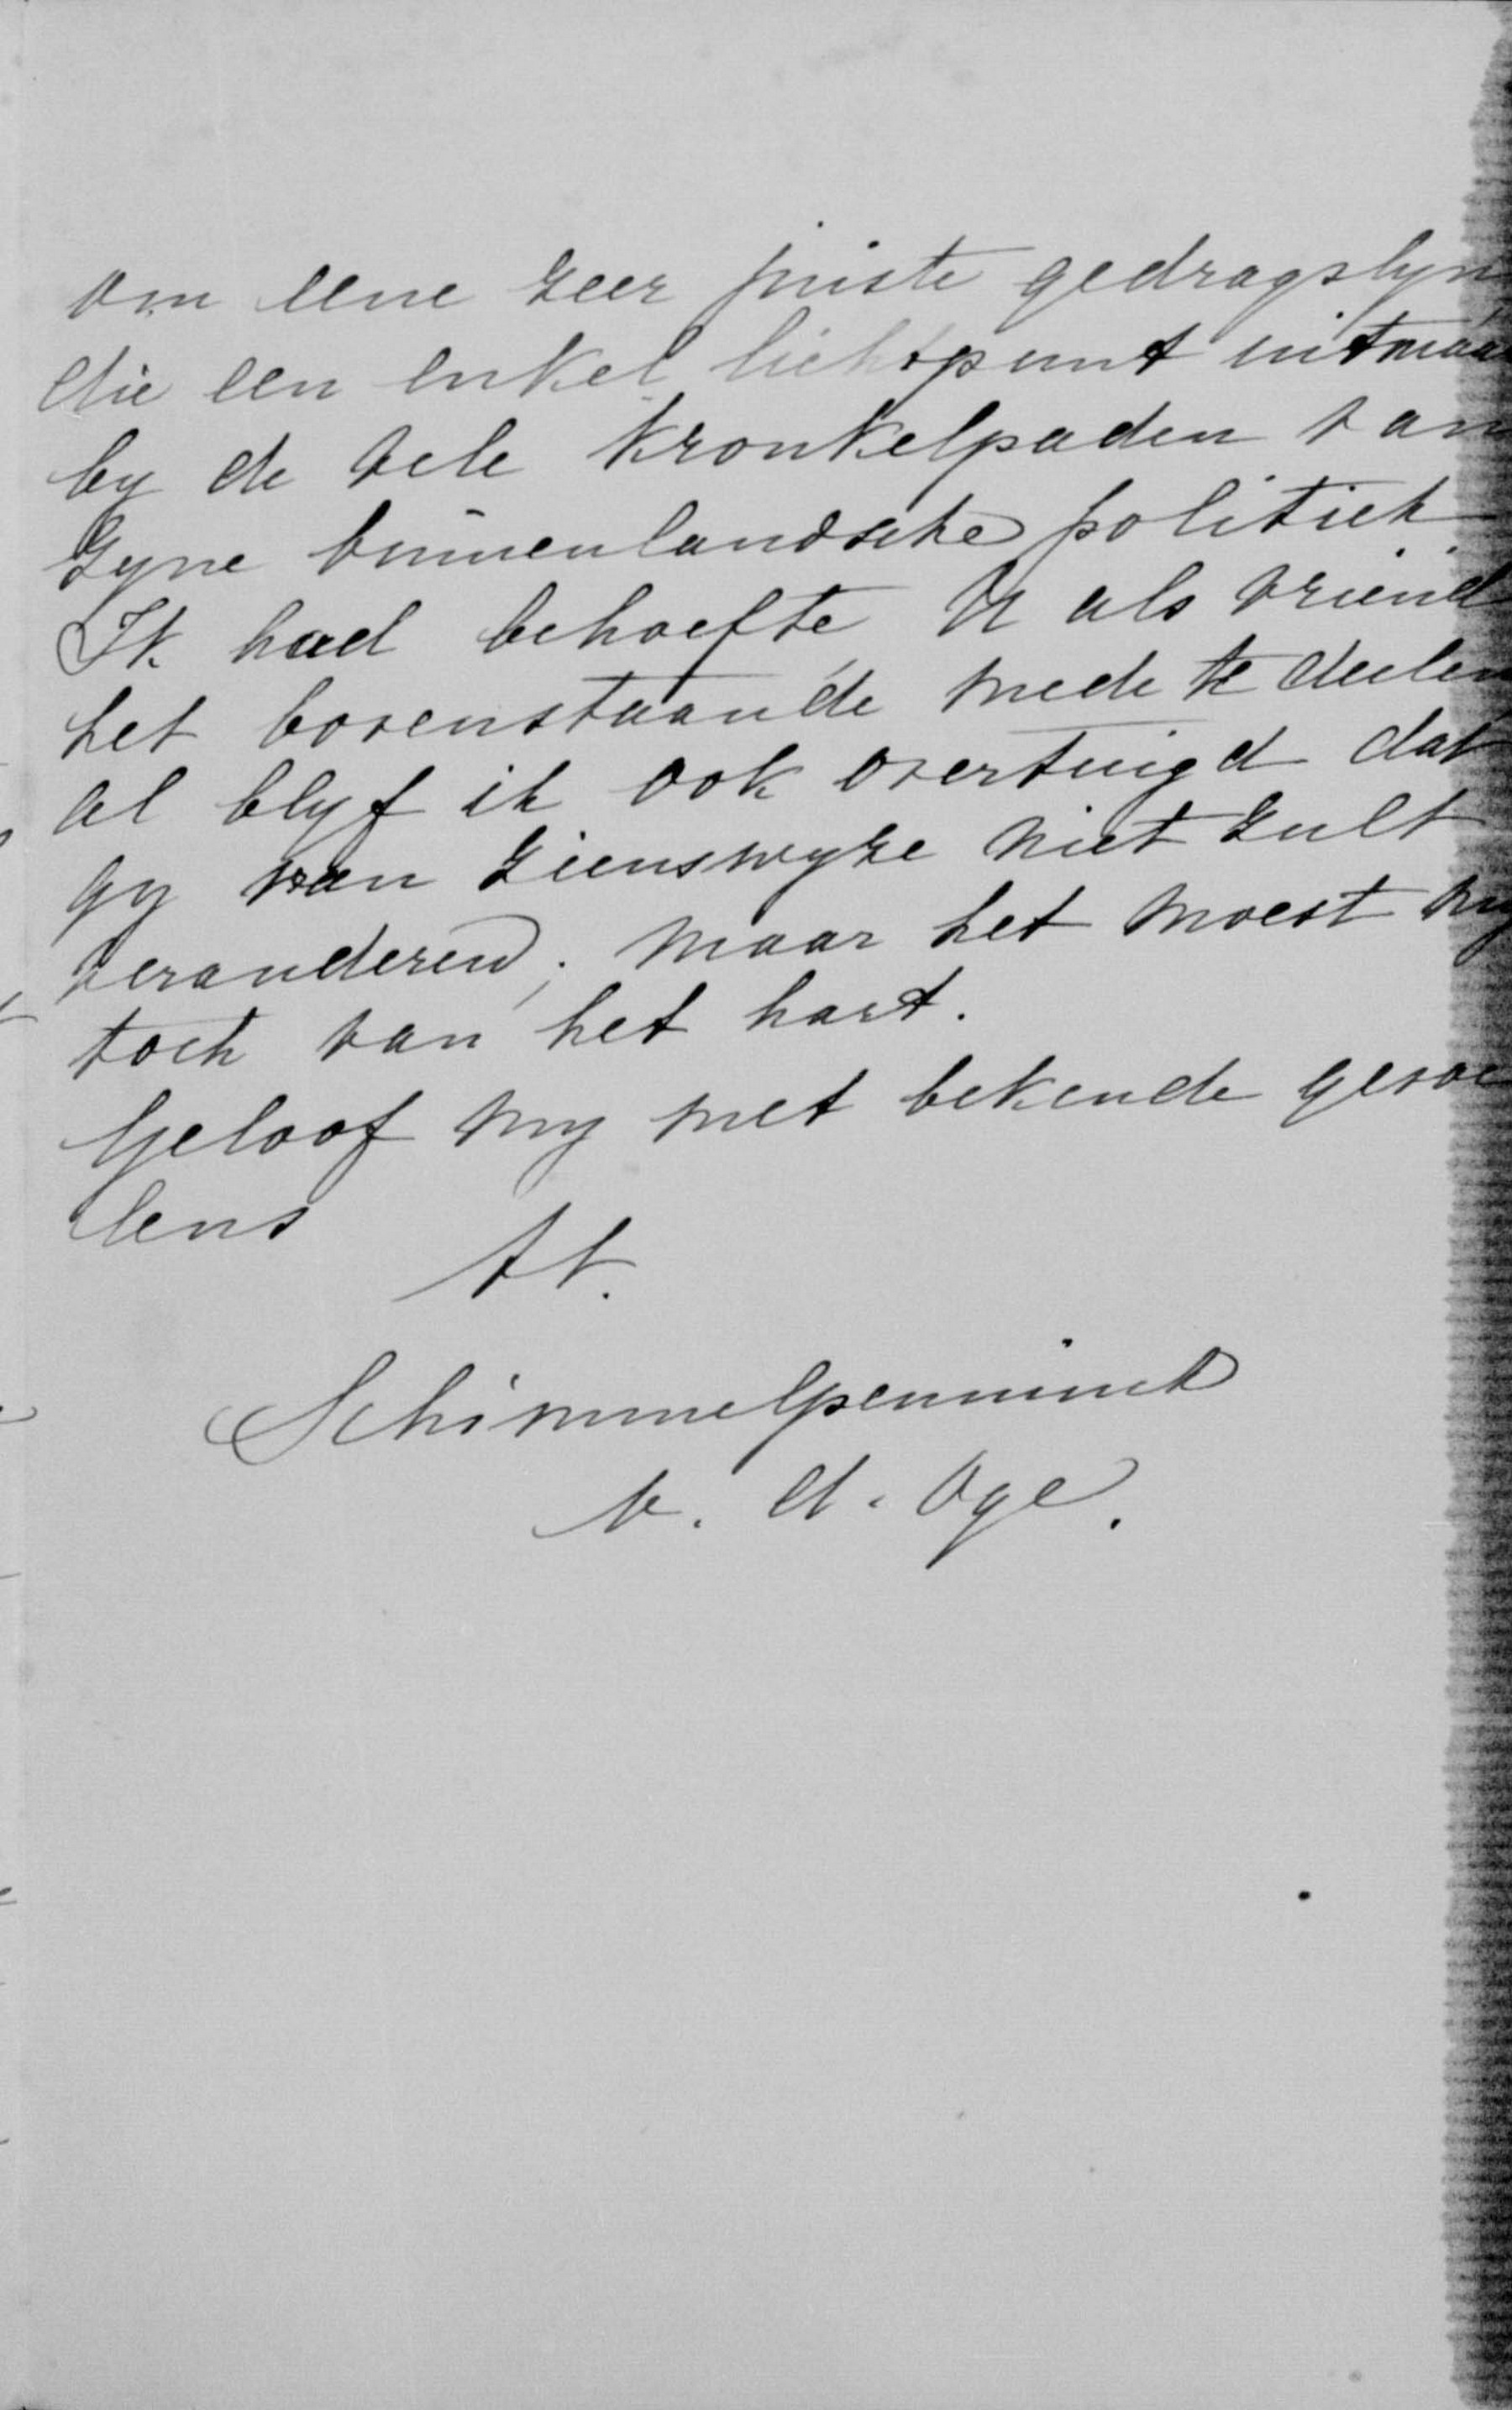 om eene zeer juiste gedragslyn
die een enkel lichtpunt uitmaa
by de vele kronkelpaden van
zyne binnenlandsche politiek.
Ik had behoefte U als vriend
het bovenstaande mede te deelen
al blyf ik ook overtuigd dat
gy van zienswyze niet zult
veranderen; maar het moest my
toch van het hart.
Geloof my met bekende gevoe
lens
tt.
Schimmelpenninck
v. d. Oye.